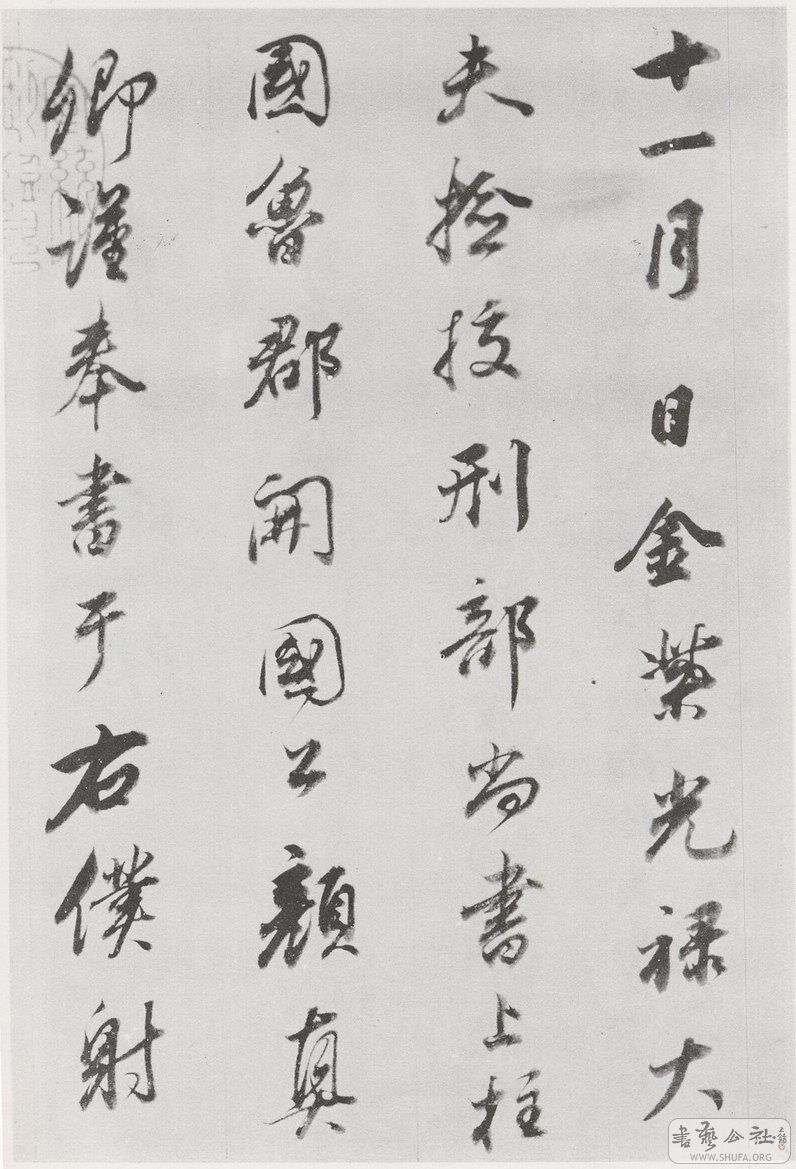 十一月日金紫光禄大
夫捡挍刑部尚書上柱
國魯郡開國公顔真
卿謹奉書于右僕射
書藝公社
WWW.SHUFA.ORG